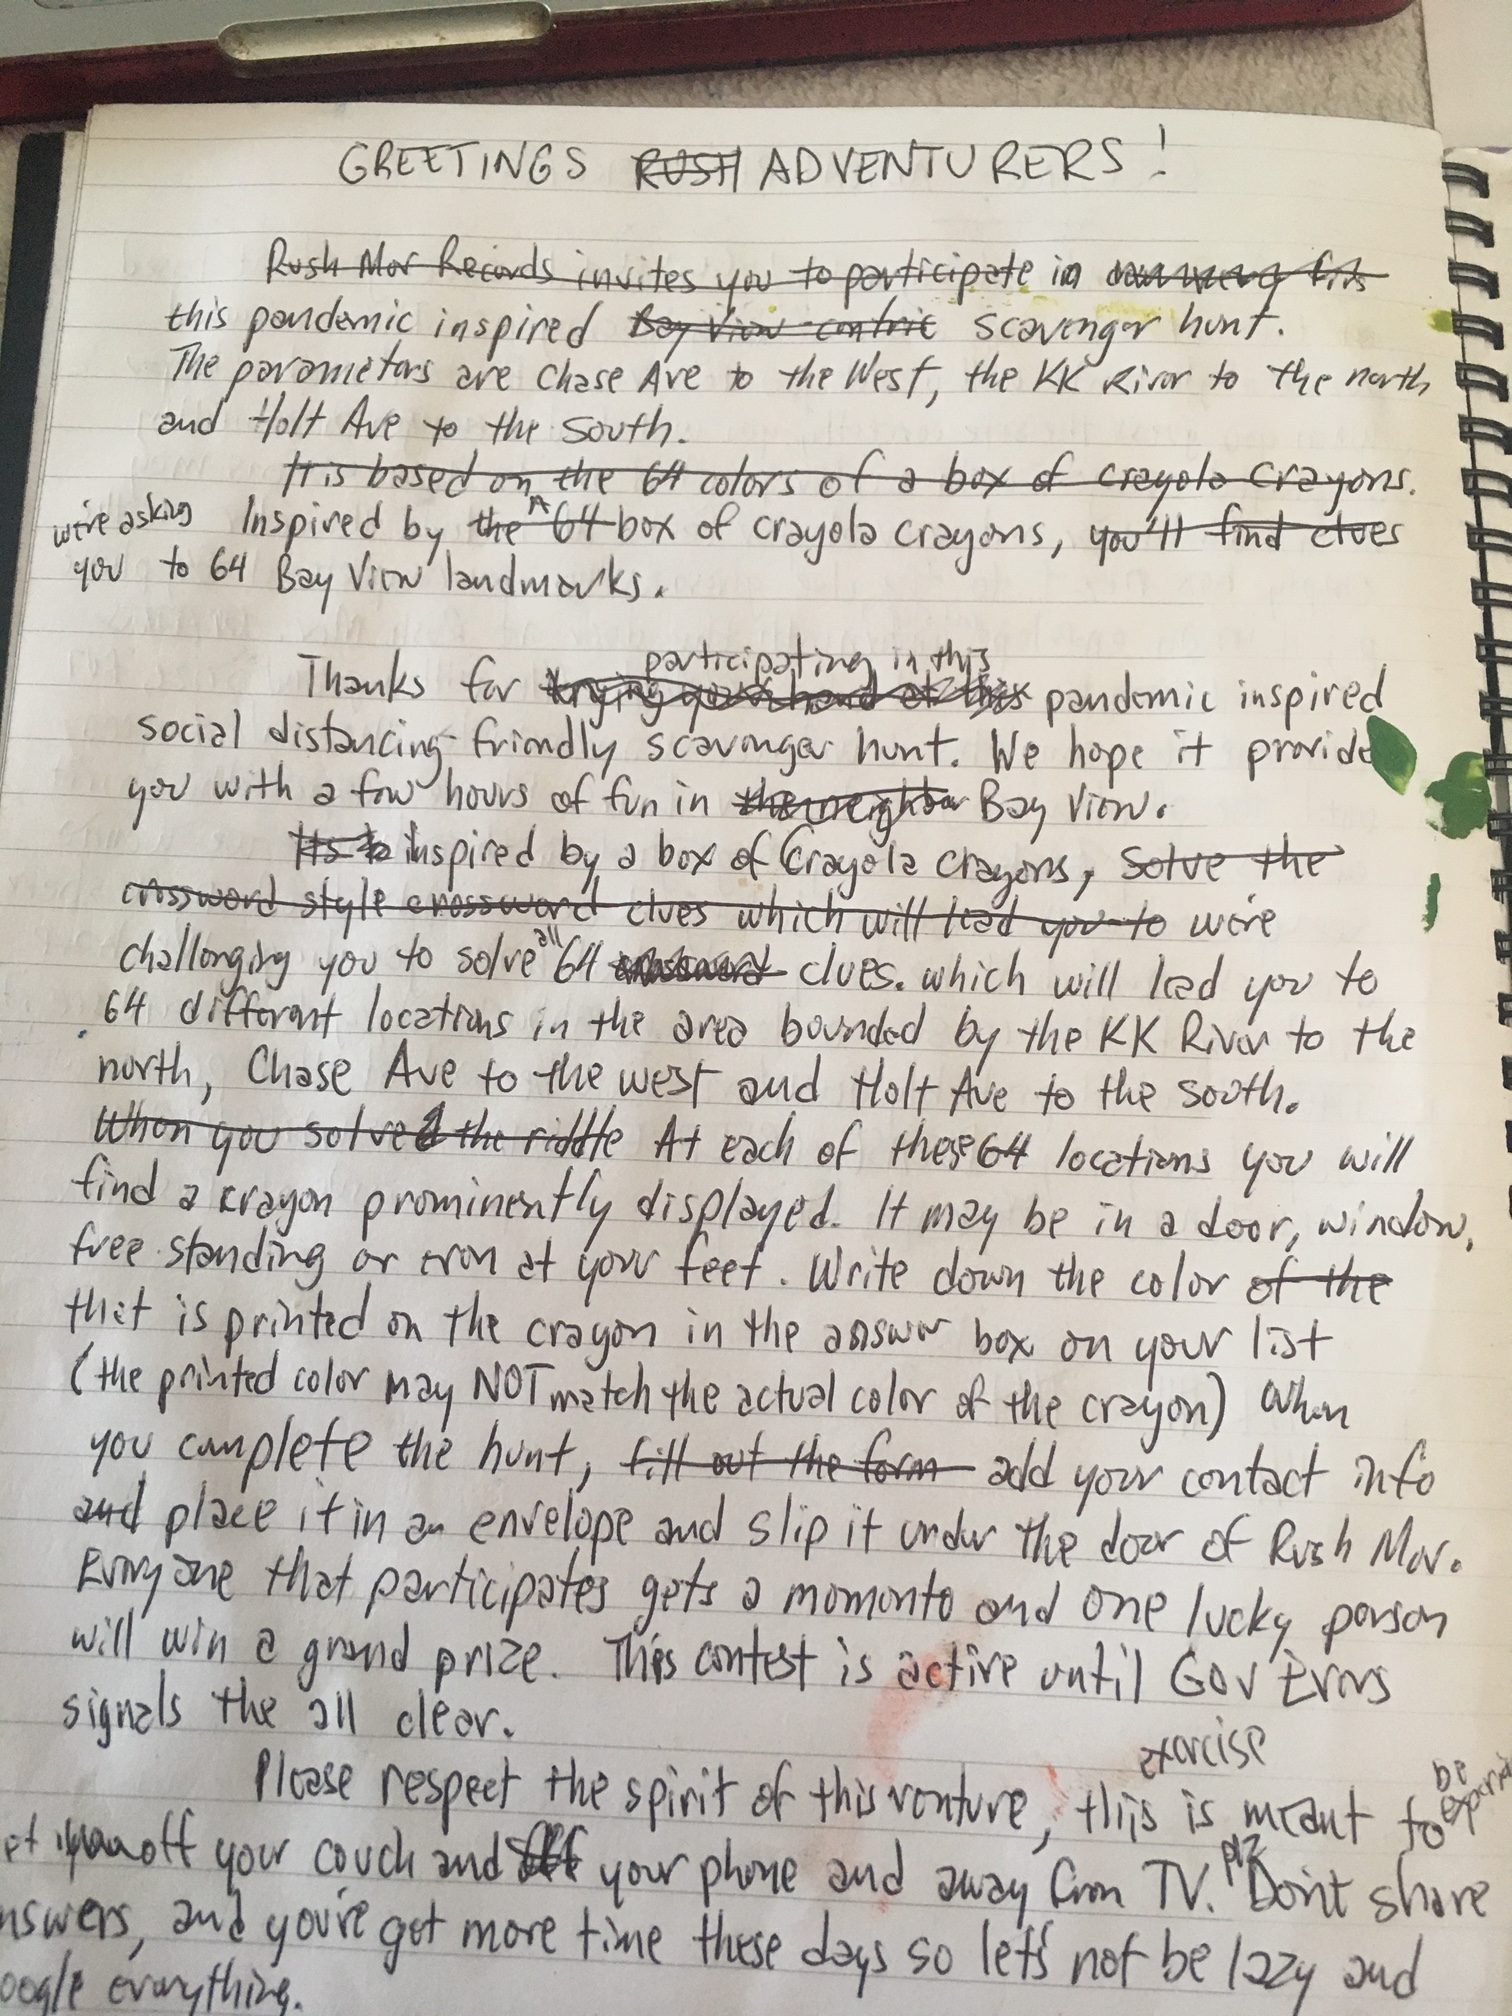 GREETINGS RUSH ADVENTURERS!
Rush Mor Records invites you to participate in
this pandemic inspired Bay View centric scavenger hunt.
The parameters are Chase Ave to the West, the KK River to the north
and Holt Ave to the South.
It is based on the 64 colors of a box of crayola crayons.
we're asking Inspired by the 64 box of crayola crayons, you'll find clues
you to 64 Bay View landmarks.
participating in this
Thanks for trying your hand at this pandemic inspired
social distancing friendly scavenger hunt. We hope it provide
you with a few hours of fun in the neighbor Bay View.
Its Inspired by a box of Crayola crayons, solve the
crossword style crossword clues which will lead you to we're
all
challenging you to solve 64 crossword clues. which will lead you to
64 different locations in the area bounded by the KK River to the
north, Chase Ave to the west and Holt Ave to the south.
When you solved the riddle At each of these 64 locations you will
find a crayon prominently displayed. It may be in a door, window,
free standing or even at your feet. Write down the color of the
that is printed on the crayon in the answer box on your list
(the printed color may NOT match the actual color of the crayon) When
you complete the hunt, fill out the form add your contact info
and place it in an envelope and slip it under the door of Rush Mor.
Everyone that participates gets a momento and one lucky person
will win a grand prize. This contest is active until Gov Evers
signals the all clear.
exercise
be
Please respect the spirit of this venture, this is meant to
plz
off your couch and off your phone and away from TV. Don't share
nswers, and you've got more time these days so let's not be lazy and
oogle everything.